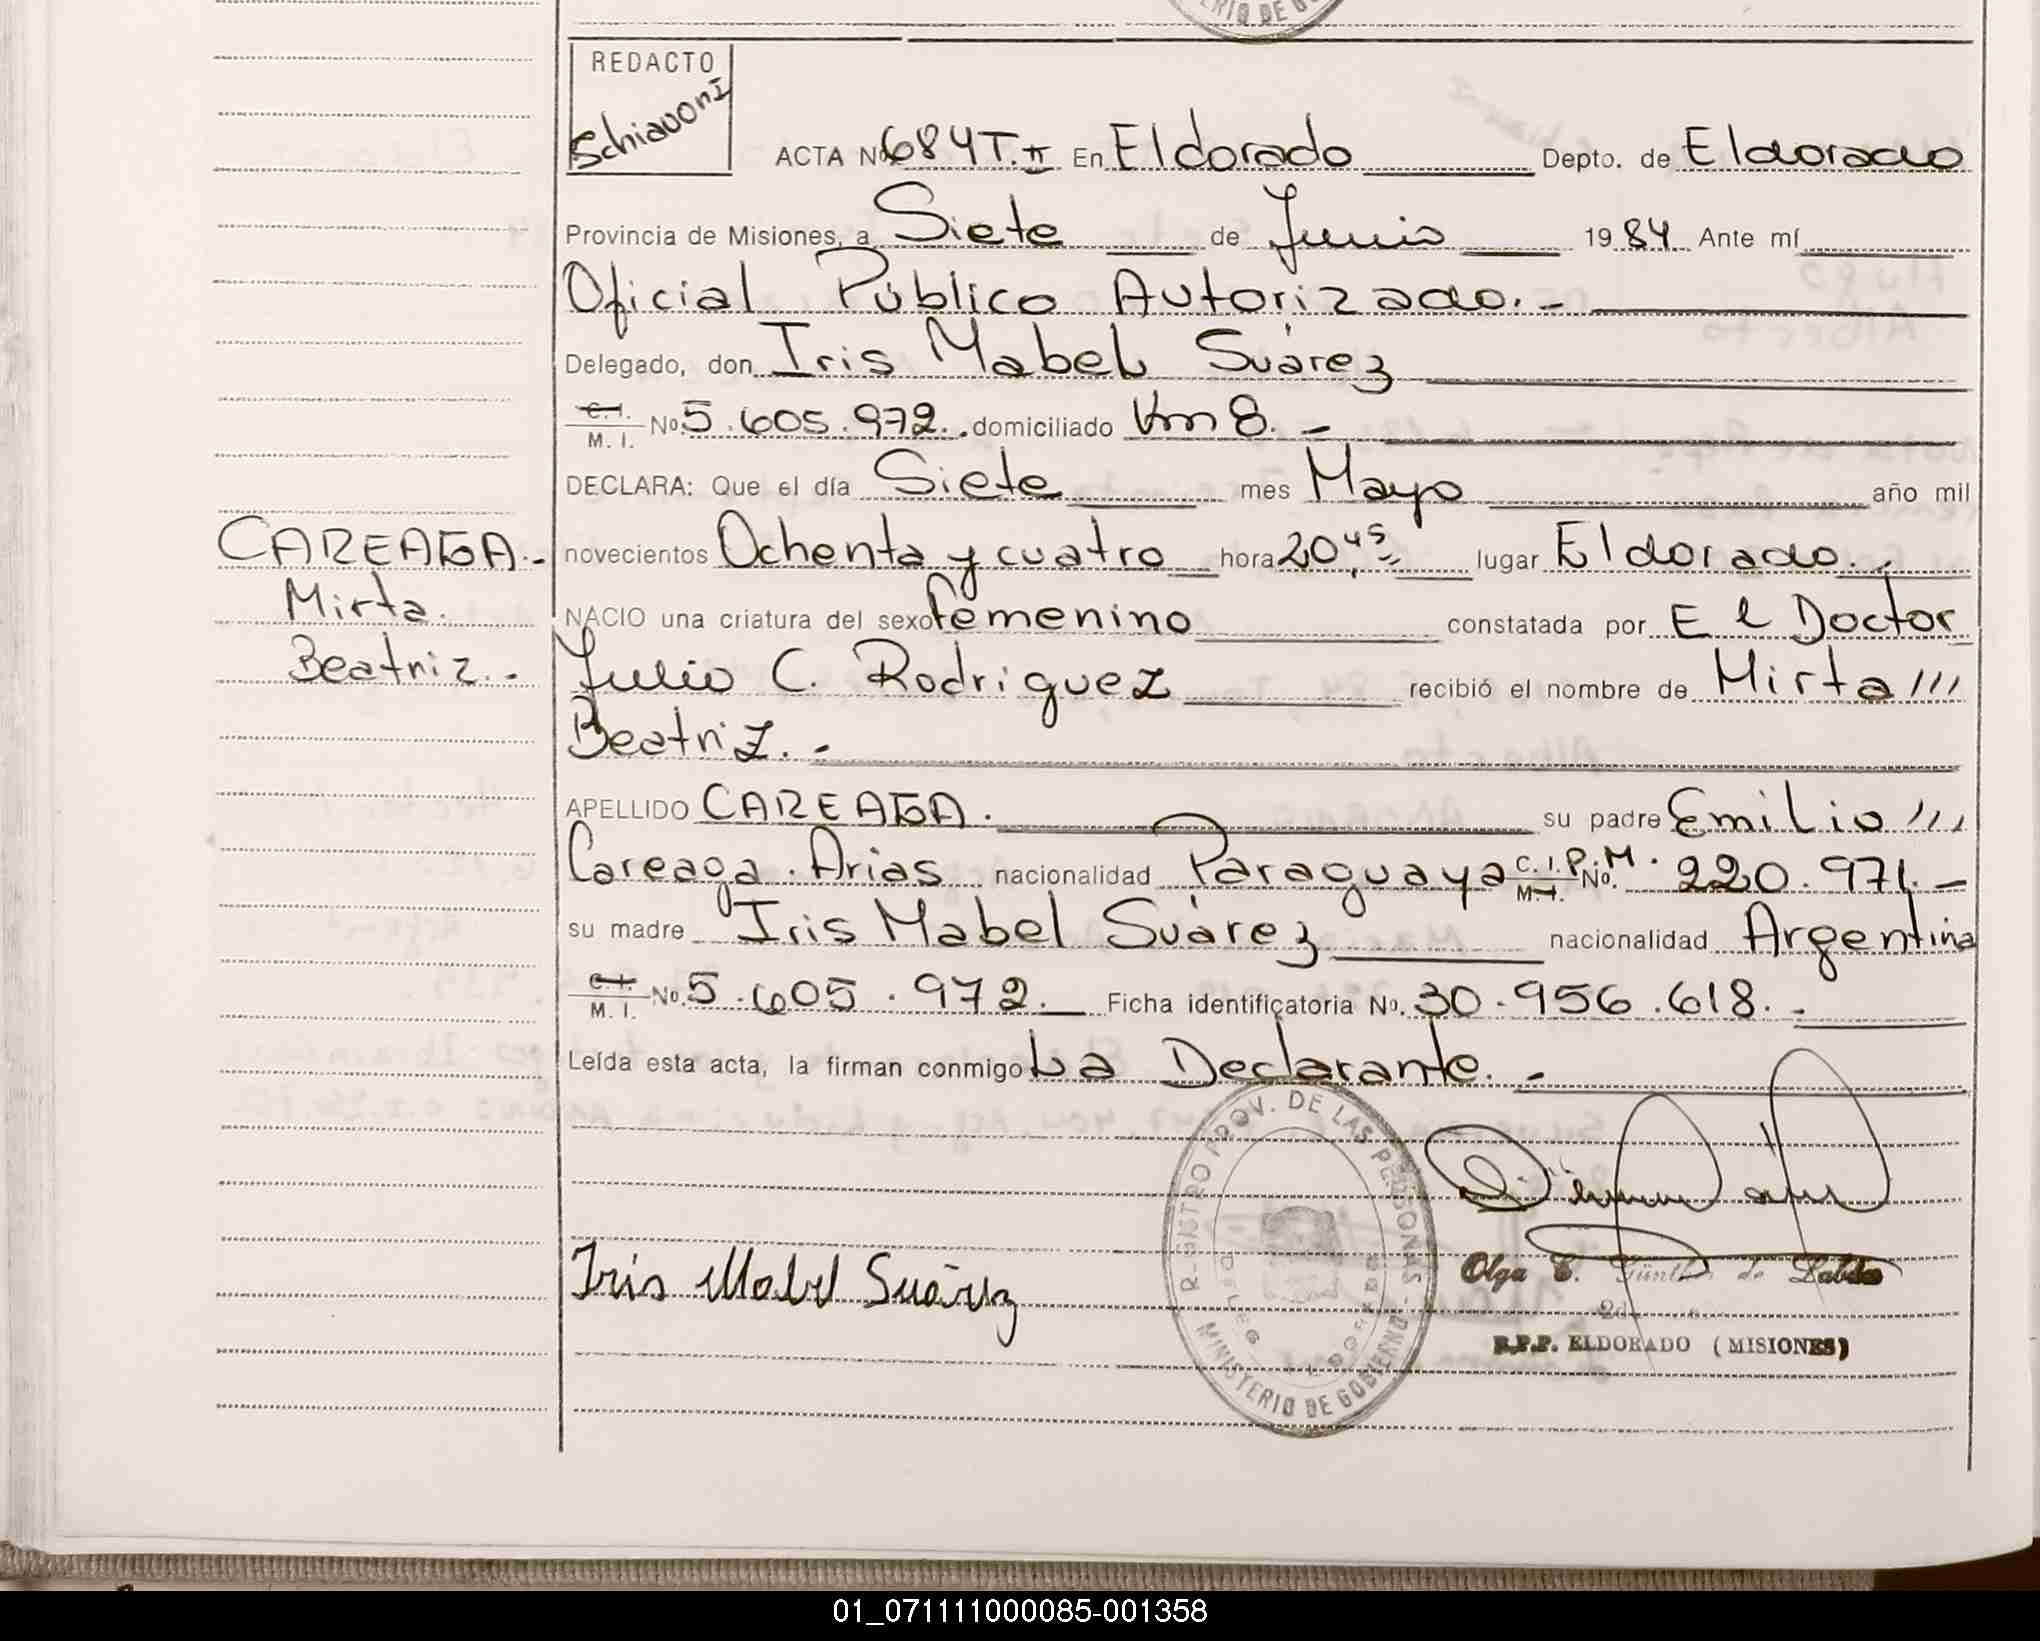 REDACTO
Schiavoni
ACTA Nº 684 T. II En Eldorado Depto. de Eldorado
Provincia de Misiones, a Siete de Junio 1984 Ante mí
Oficial Público Autorizado.-
Delegado, don Iris Mabel Suárez
C.I. M. I. No. 5.605.972. domiciliado Km 8. -
DECLARA: Que el día Siete mes Mayo año mil
novecientos Ochenta y cuatro hora 20,45 lugar Eldorado.-
NACIO una criatura del sexo femenino constatada por El Doctor
Julio C. Rodriguez recibió el nombre de Mirta ///
Beatriz. -
APELLIDO CAREAGA. su padre Emilio ///
Careaga Arias nacionalidad Paraguaya C.I.P.M. M.I. No. 220.971.-
su madre Iris Mabel Suárez nacionalidad Argentina
C.I. M. I. No. 5.605.972. Ficha identificatoria No. 30.956.618. -
Leída esta acta, la firman conmigo La Declarante. -
CAREAGA.-
Mirta.
Beatriz.-
Iris Mabel Suárez
REGISTRO PROV. DE LAS PERSONAS - MINISTERIO DE GOBIERNO
Olga E. Günther de
R.P.P. ELDORADO (MISIONES)
MINISTERIO DE GOBIERNO
01_071111000085-001358